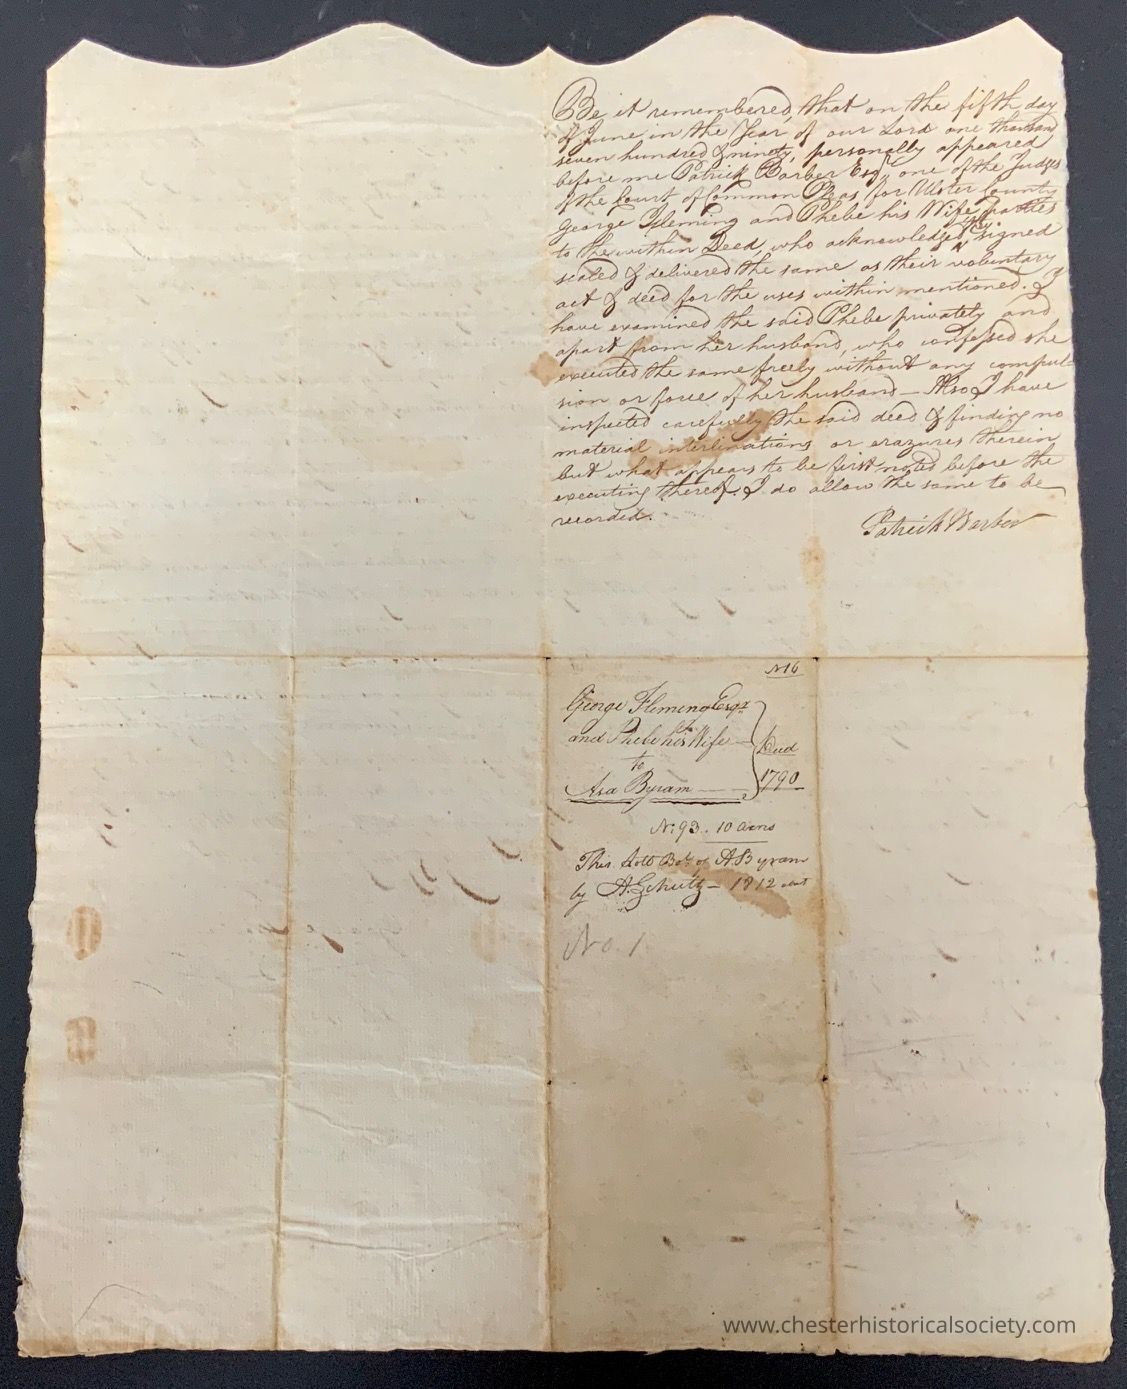 Be it remembered, that on the fifth day
of June in the Year of our Lord one thousand
seven hundred & ninety, personally appeared
before me Patrick Barber Esqr. one of the Judges
of the Court of Common Pleas for Ulster County
George Fleming and Phebe his Wife, parties
to the within Deed, who acknowledged they signed
sealed & delivered the same as their voluntary
act & deed for the uses within mentioned. & I
have examined the said Phebe privately and
apart from her husband, who confessed she
executed the same freely without any compul-
sion or force of her husband — Also I have
inspected carefully the said deed & finding no
material interlinations or erazures therein
but what appears to be first noted before the
executing thereof. I do allow the same to be
recorded.
Patrick Barber
No. 6
George Fleming Esqr.
and Phebe his Wife
to
Asa Byram
Deed
1790
No. 93. 10 acres
This Lott Bot. of A Byram
by A. Schultz — 1812
No. 1
www.chesterhistoricalsociety.com